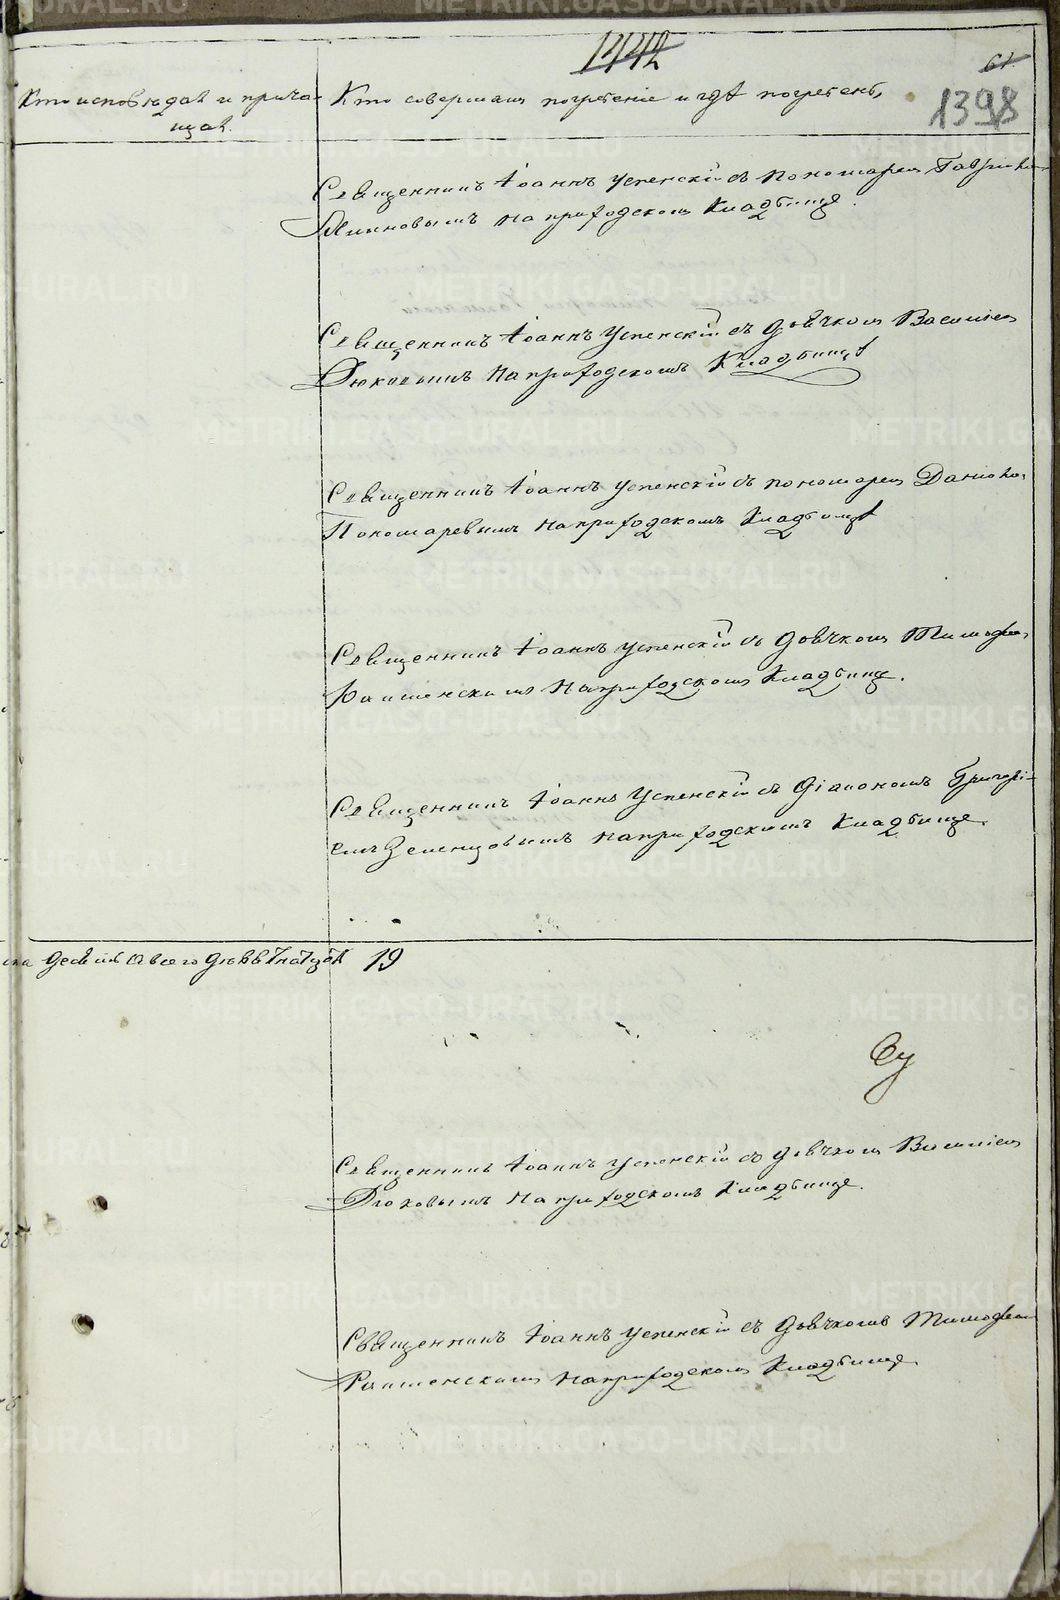 1442
61
1398
Кто исповѣдал и прича-
щал.
Кто совершал погребеніе и гдѣ погребенъ
Священникъ Іоаннъ Успенскій съ пономарем Гаврило
на приходском Кладбище.
Священникъ Іоаннъ Успенскій съ дьячком Василіем
Дюковымъ на приходскомъ Кладбищѣ
Священникъ Іоаннъ Успенскій съ пономарем Данило
Пономаревымъ на приходскомъ Кладбищѣ
Священникъ Іоаннъ Успенскій съ дьячком Тимофеем
на приходском Кладбище.
Священникъ Іоаннъ Успенскій съ Діакономъ Григорі-
емъ Земенцовымъ на приходскимъ Кладбище.
всего девятнатцать 19
Священникъ Іоаннъ Успенскій съ дьячком Василіем
Дюковымъ на приходскомъ Кладбище.
Священникъ Іоаннъ Успенскій съ дьячкомъ Тимофеем
на приходском Кладбище.
METRIKI.GASO-URAL.RU